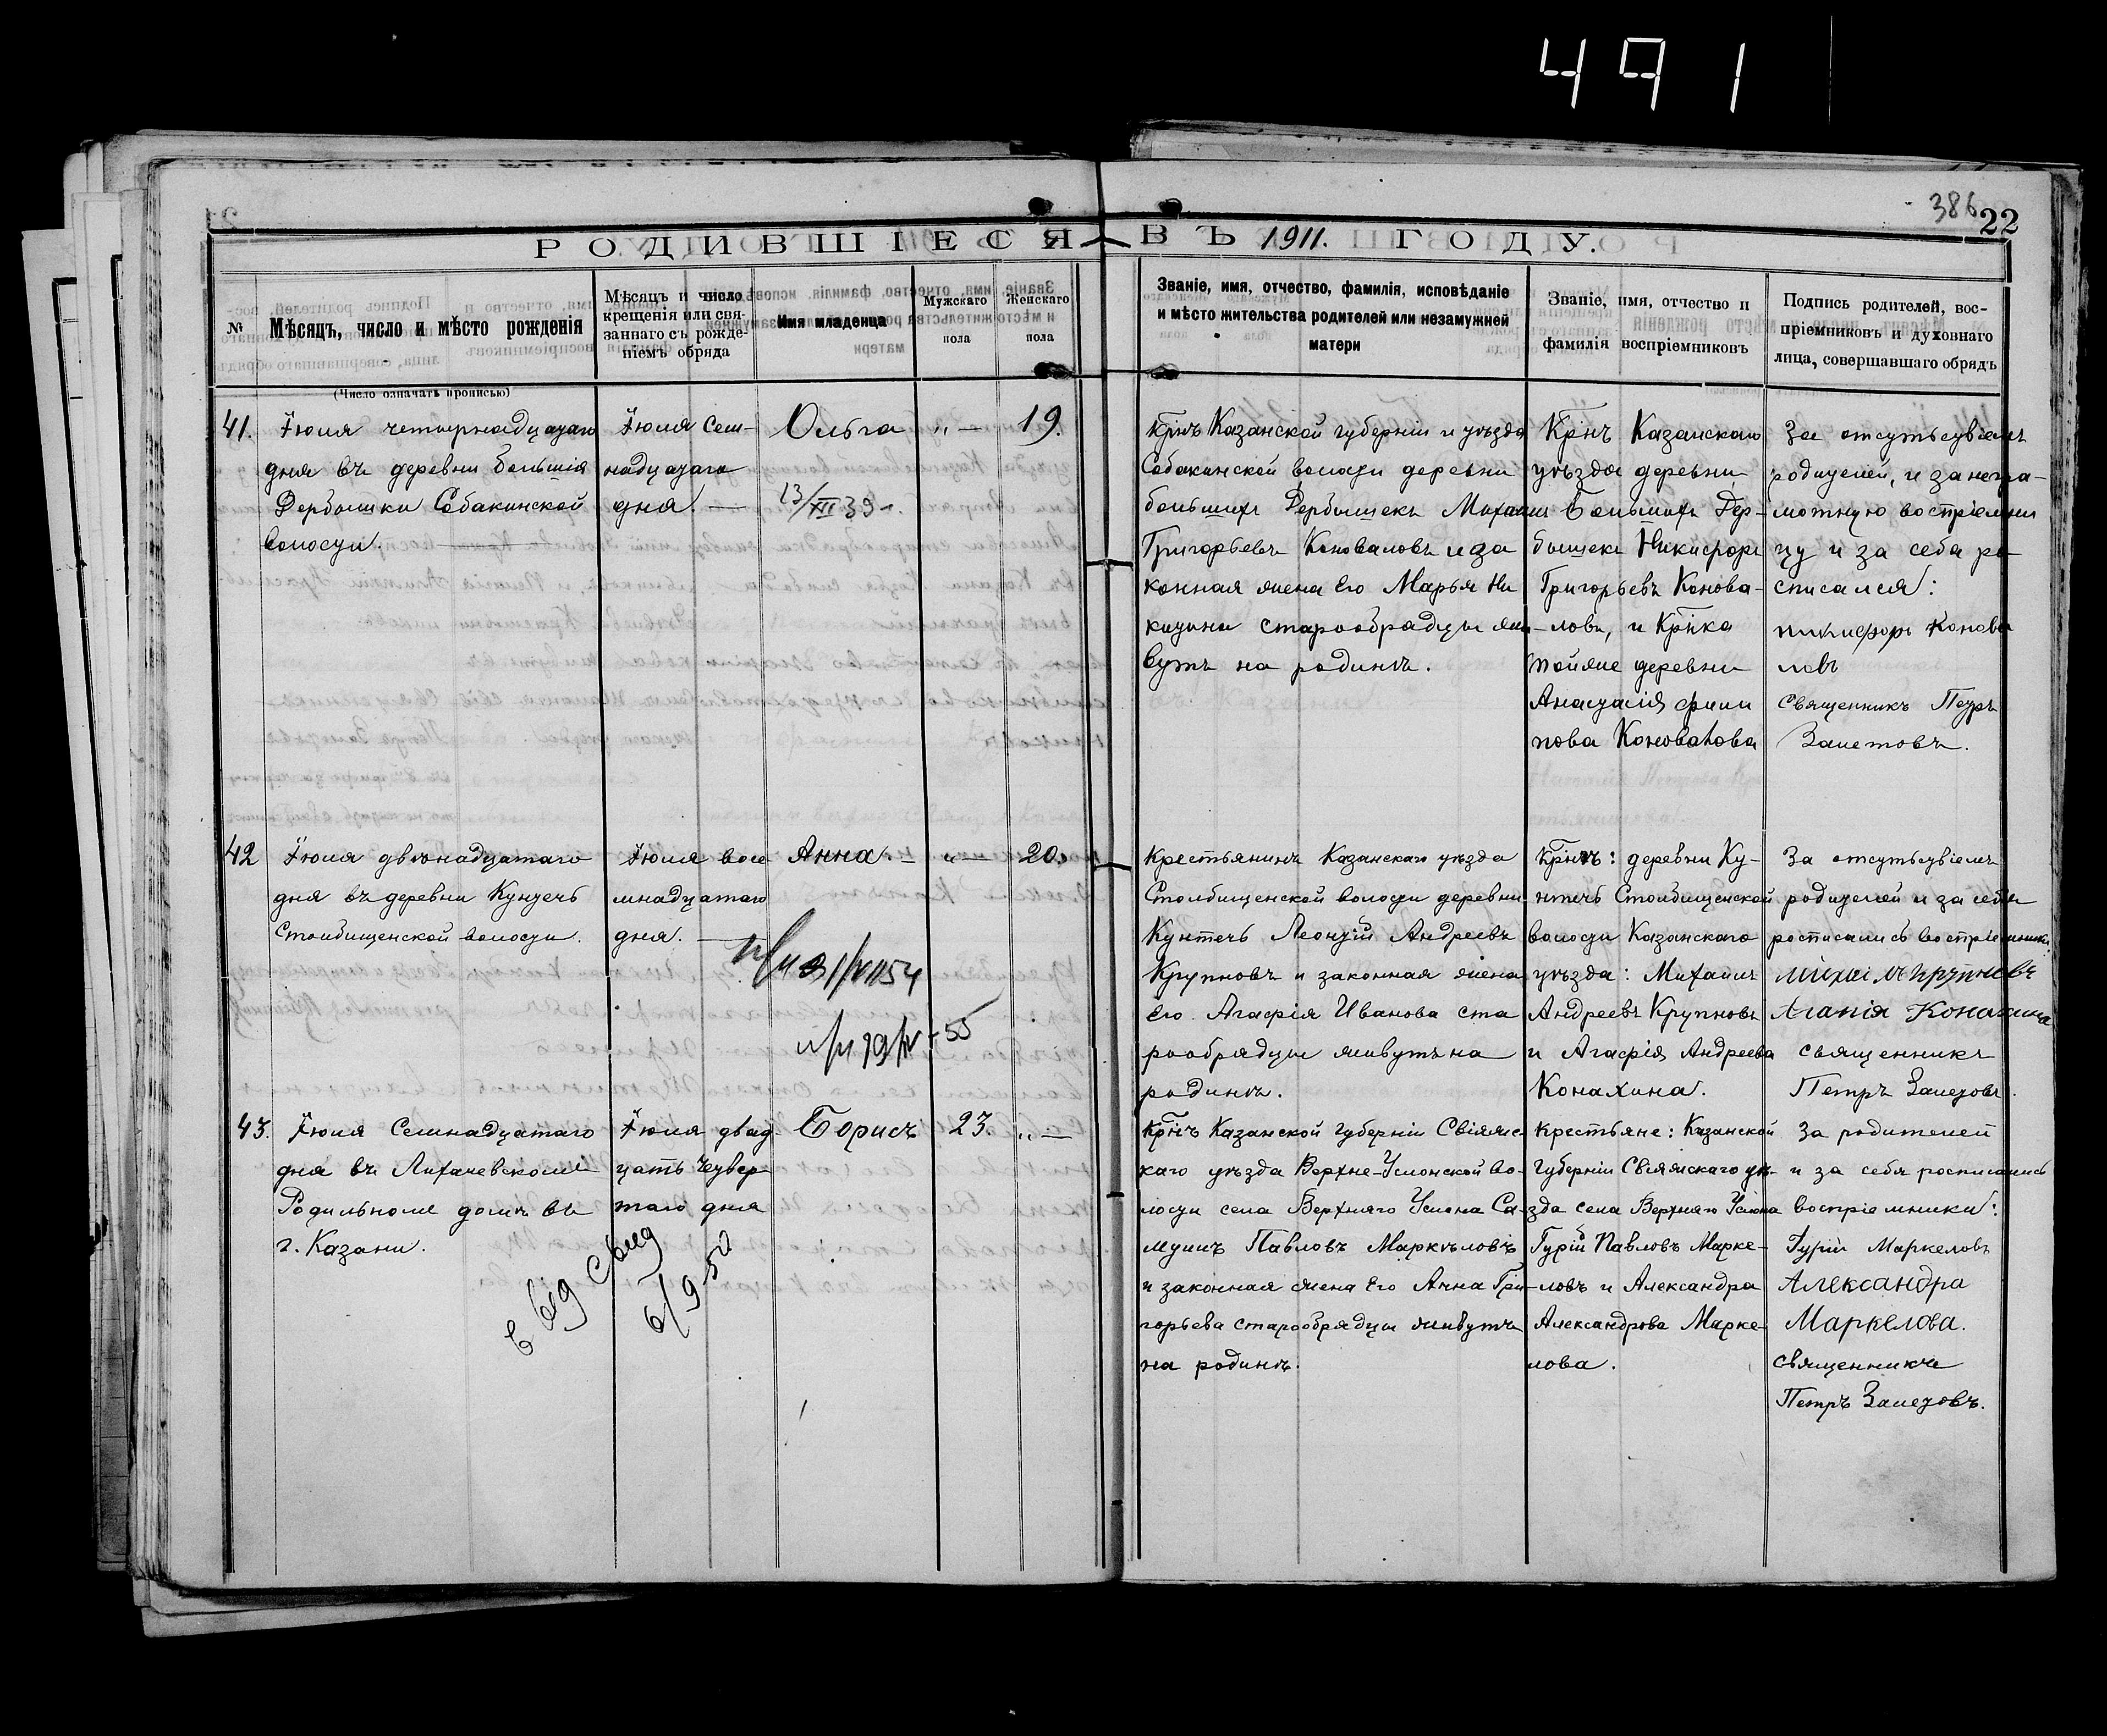 491
386
22
РОДИВШІЕСЯ ВЪ 1911. ГОДУ.
№
Мѣсяцъ, число и мѣсто рожденія
(Число означать прописью)
Мѣсяцъ и число
крещенія или свя-
заннаго съ рожде-
ніемъ обряда
Имя младенца
Мужскаго
пола
Женскаго
пола
Званіе, имя, отчество, фамилія, исповѣданіе
и мѣсто жительства родителей или незамужней
матери
Званіе, имя, отчество и
фамилія воспріемниковъ
Подпись родителей, вос-
пріемниковъ и духовнаго
лица, совершавшаго обрядъ
41.
Іюля четырнадцатаго
дня въ деревни большія
Дербышки Собакинской
волости.
Іюля Сем-
надцатаго
дня. —
Ольга
13/XII 39
„ —
19.
Крнъ Казанской губерніи и уѣзда
Собакинской волости деревни
большихъ Дербышекъ Михаилъ
Григорьевъ Коноваловъ и за
конная жена Его Марья Ни
китина старообрядцы жи
вутъ на родинѣ.
Крнъ Казанскаго
уѣзда деревни
Большихъ Дер-
бышекъ Никифоръ
Григорьевъ Конова-
-ловъ, и Крнка
тойже деревни
Анастасія филип
пова Коновалова
За отсутствіемъ
родителей, и за негра-
мотную воспріемни
цу и за себа ро-
списался:
никифоръ Конова
ловъ
Священникъ Петръ
Залетовъ.
42
Іюля двѣнадцатаго
дня въ деревни Кунтечь
Столбищенской волости.
Іюля восе
мнадцатаго
дня. —
Анна. —
„ —
20.
Крестьянинъ Казанскаго уѣзда
Столбищенской волости деревни
Кунтечь Леонтій Андреевъ
Крупновъ и законная жена
Его Агафія Иванова ста
рообрядцы живутъ на
родинѣ.
Крнъ: деревни Ку-
нтечь Столбищенской
волости Казанскаго
уѣзда: Михаилъ
Андреевъ Крупновъ
и Агафія Андреева
Конахина.
За отсутствіемъ
родителей и за себя
росписались воспріемники:
Михаилъ Крупновъ
Агапія Конахина
священникъ
Петръ Залетовъ.
43.
Іюля Семнадцатаго
дня въ Лихачевскомъ
Родильномъ домѣ въ
г. Казани.
Іюля двад
цать четвер
таго дня
Борисъ
23.
„ —
Крнъ Казанской губерніи Свіяжс-
каго уѣзда Верхне-Услонской во-
лости села Верхняго Услона Са-
муилъ Павловъ Маркѣловъ
и законная жена Его Анна Гри-
горьева старообрядцы живутъ
на родинѣ.
Крестьяне: Казанской
губерніи Свіяжскаго уѣ-
зда села Верхняго Услона
Гурій Павловъ Марке-
ловъ и Александра
Александрова Марке-
лова.
За родителей
и за себя росписались
воспріемники:
Гурій Маркеловъ
Александра
Маркелова.
священникъ
Петръ Залетовъ.